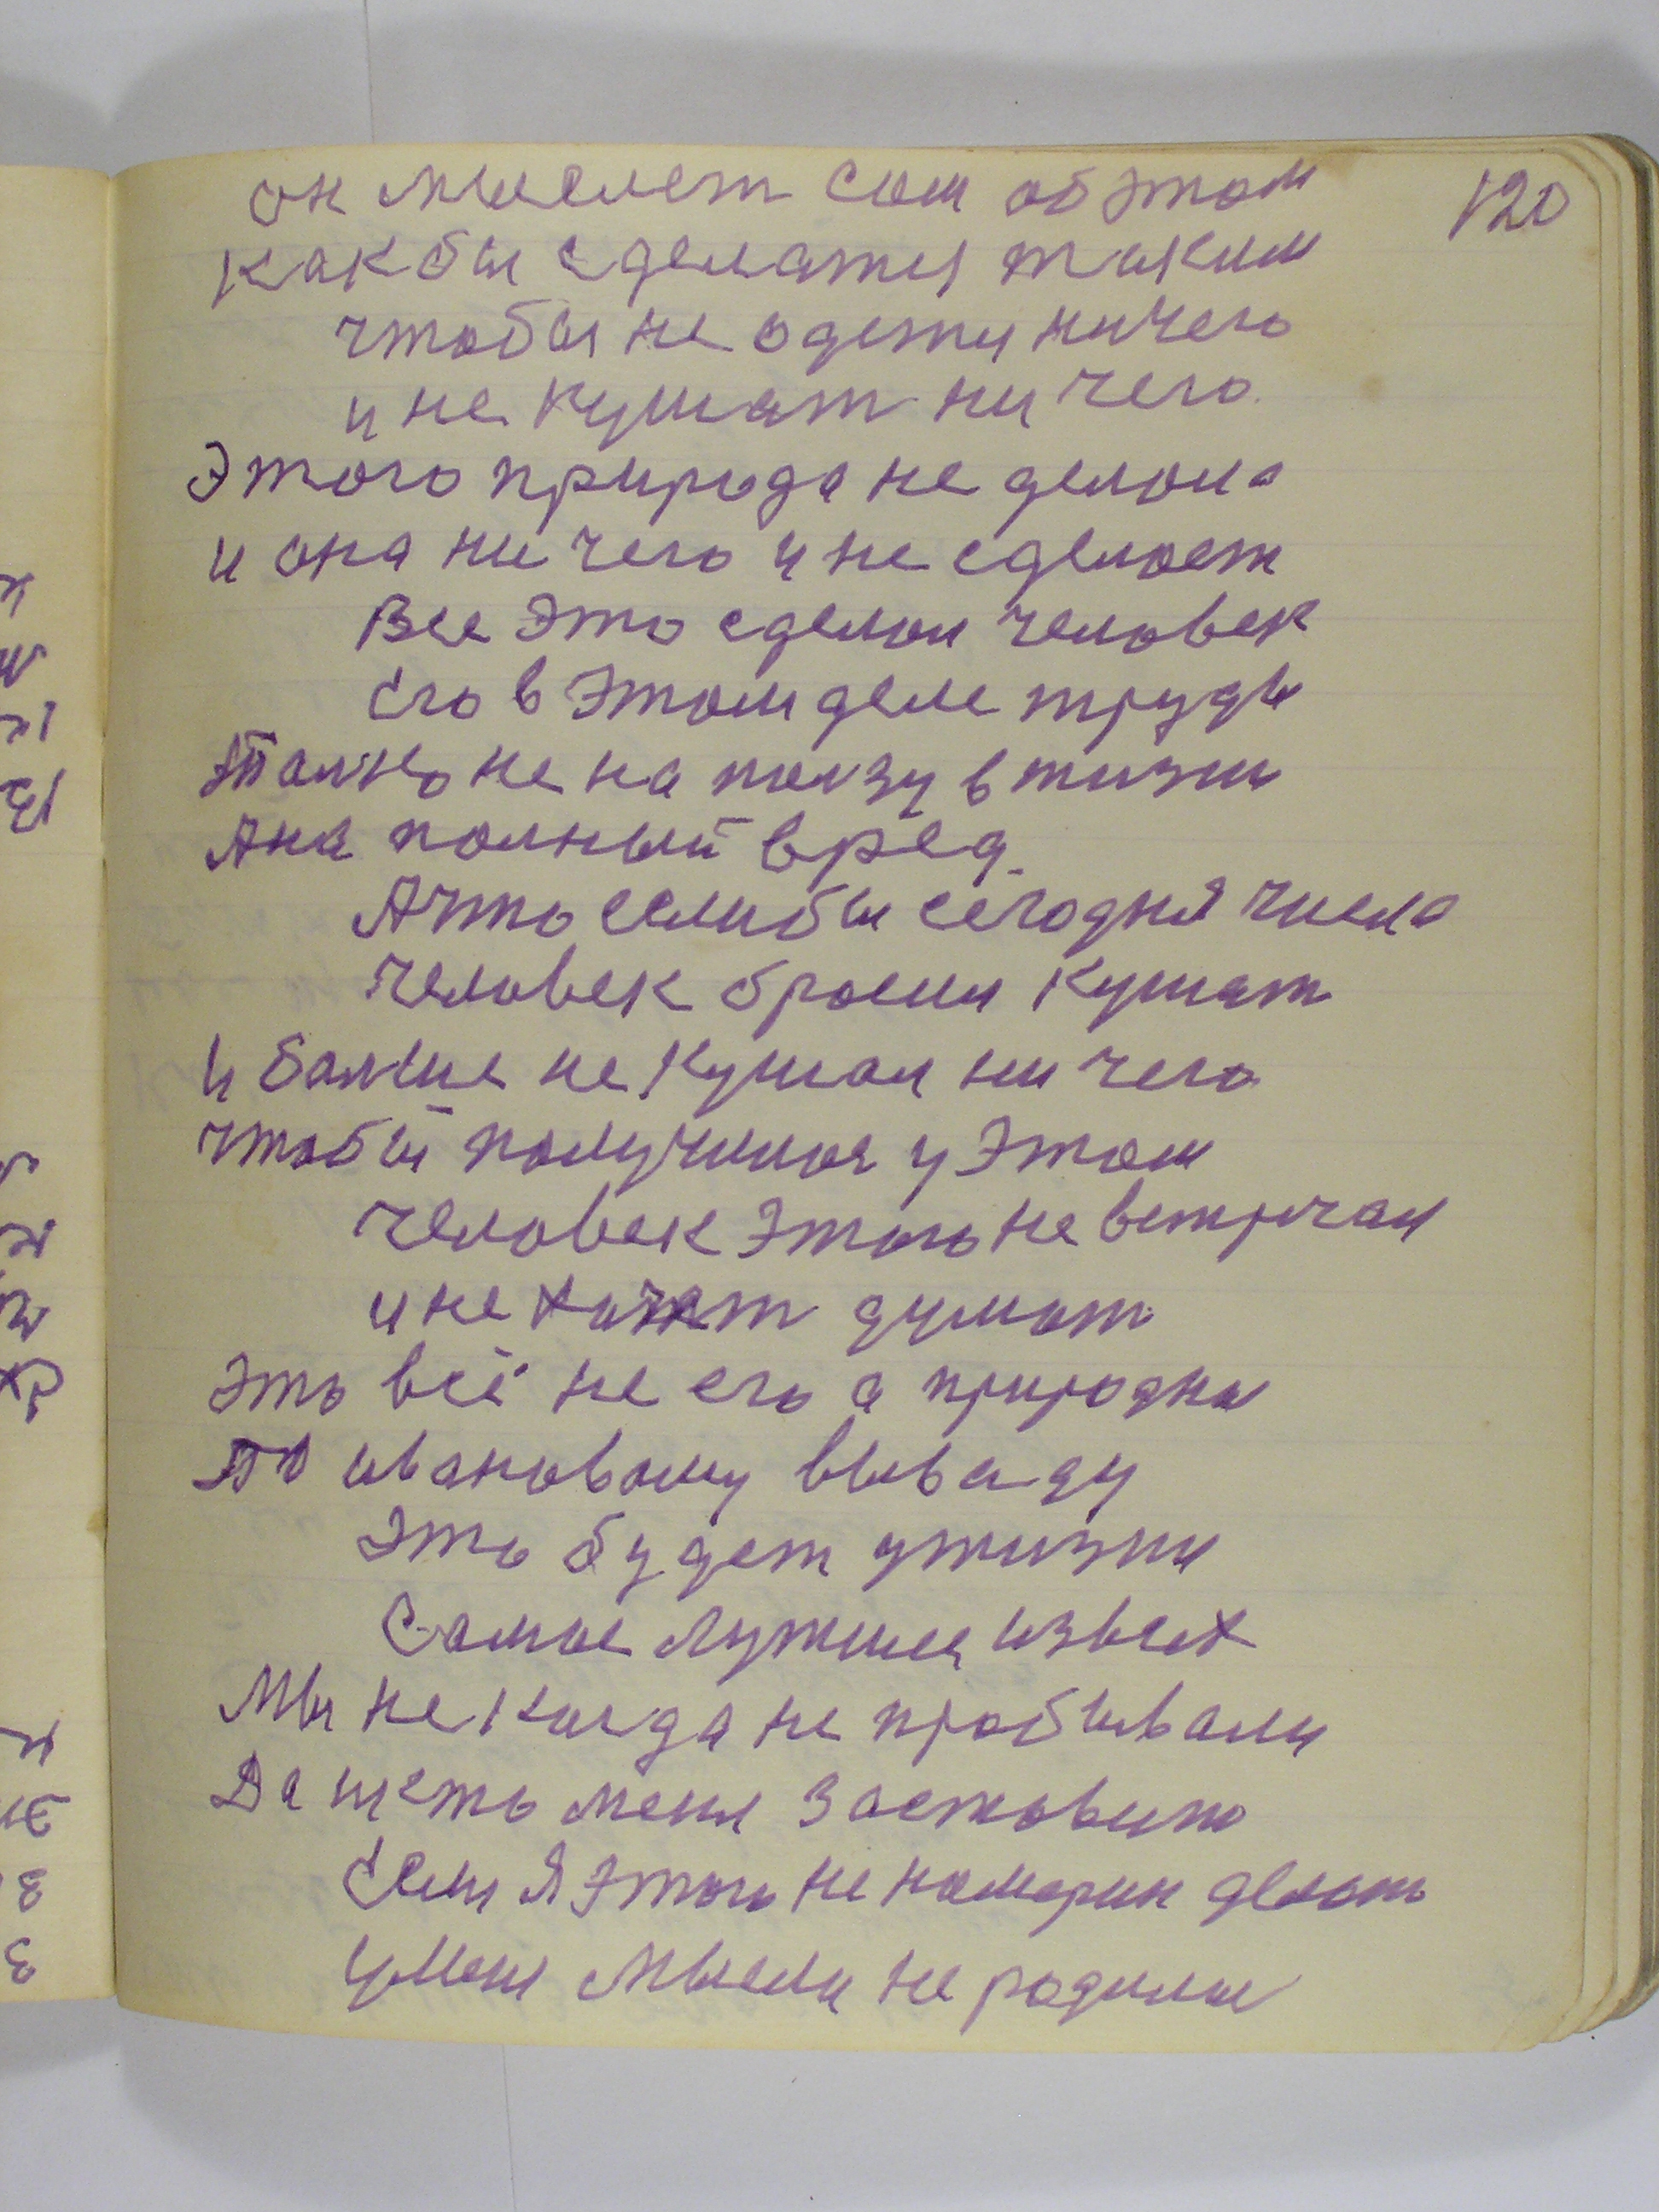 120
он мыслет сам об этом
как бы сделатця таким
чтобы не одеть ничего
и не кушат ни чего.
Этого природа не делола
и она ни чего и не сделоет
Все это сделол человек
его в этом деле труды
Толко не на ползу в жизни
Ана полный вред.
А что еслибы сегодня числа
человек бросил кушат
и болше не кушал ни чего
чтобы получилос у этом
человек этого не встречал
и не хочет думат
это всё не его а природны
по ивановому выва ду
это будет ужизни
самое лутшие извсех
Мы не когда не пробывали
Да и кто меня застовит
если я этого не номерин делот
у меня мысли не родилис